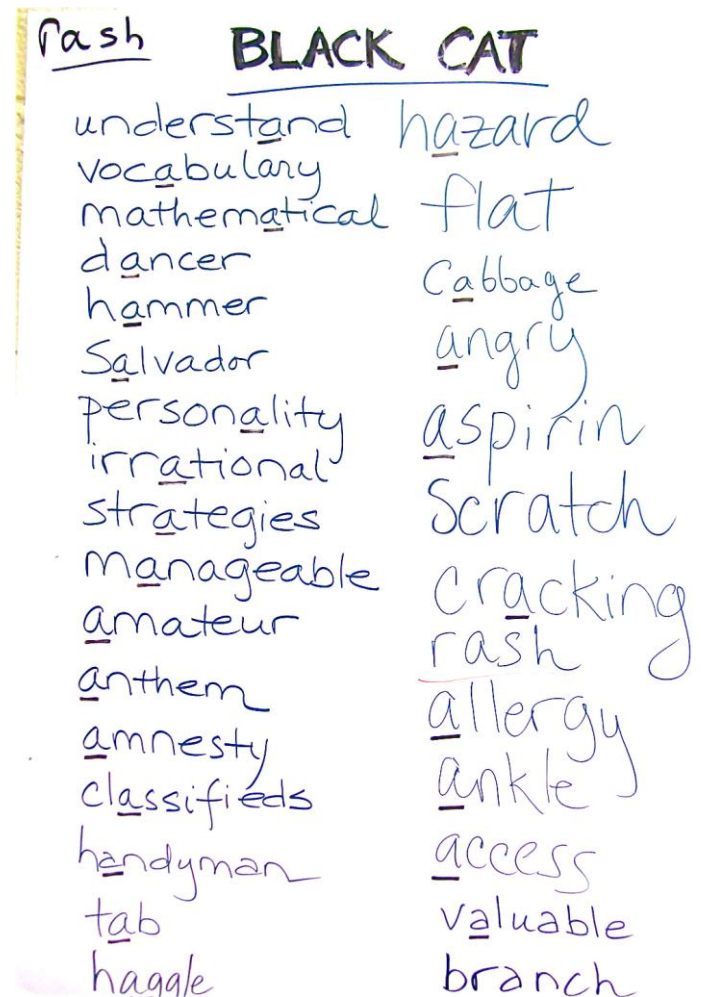 rash
BLACK CAT
understand
vocabulary
mathematical
dancer
hammer
Salvador
personality
irrational
strategies
manageable
amateur
anthem
amnesty
classifieds
handyman
tab
haggle
hazard
flat
Cabbage
angry
aspirin
Scratch
cracking
rash
allergy
ankle
access
valuable
branch